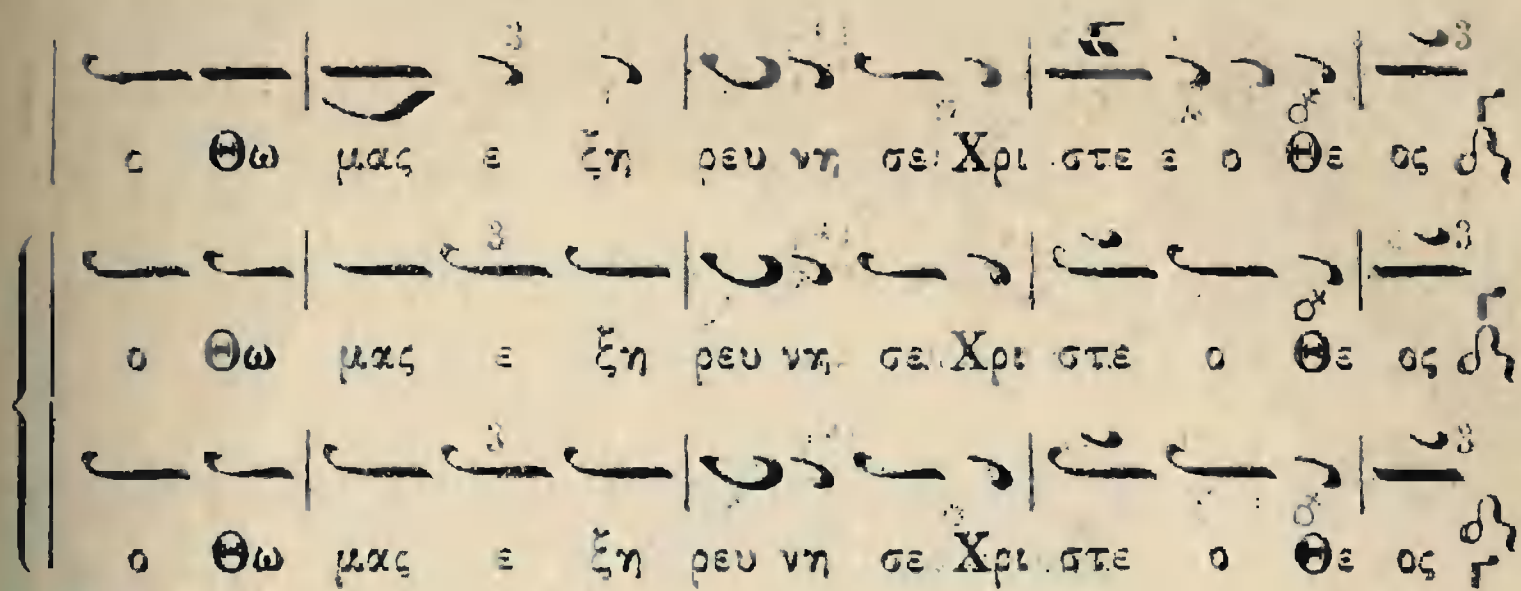 ο Θω μας ε ξη ρευ νη σε Χρι στε ε ο Θε ος
ο Θω μας ε ξη ρευ νη σε Χρι στε ο Θε ος
ο Θω μας ε ξη ρευ νη σε Χρι στε ο Θε ος